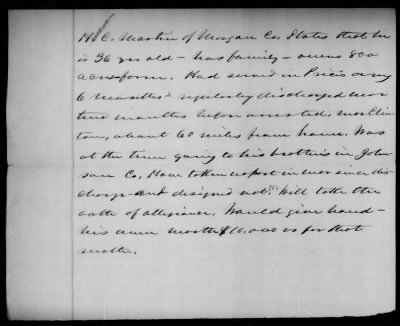 H C. Martin of Morgan Co. States that he
is 36 yrs old - has family - owns 800
acres farm. Had served in Prices army
6 months & regularly discharged near
two months before arrested,
about 60 miles from home. Was
at the time going to his brothers in John-
son Co. Have taken no part in war since dis-
charge and designed not to. Will take the
oath of allegiance. Would give bond -
his own worth $10,000 is for that
matter.